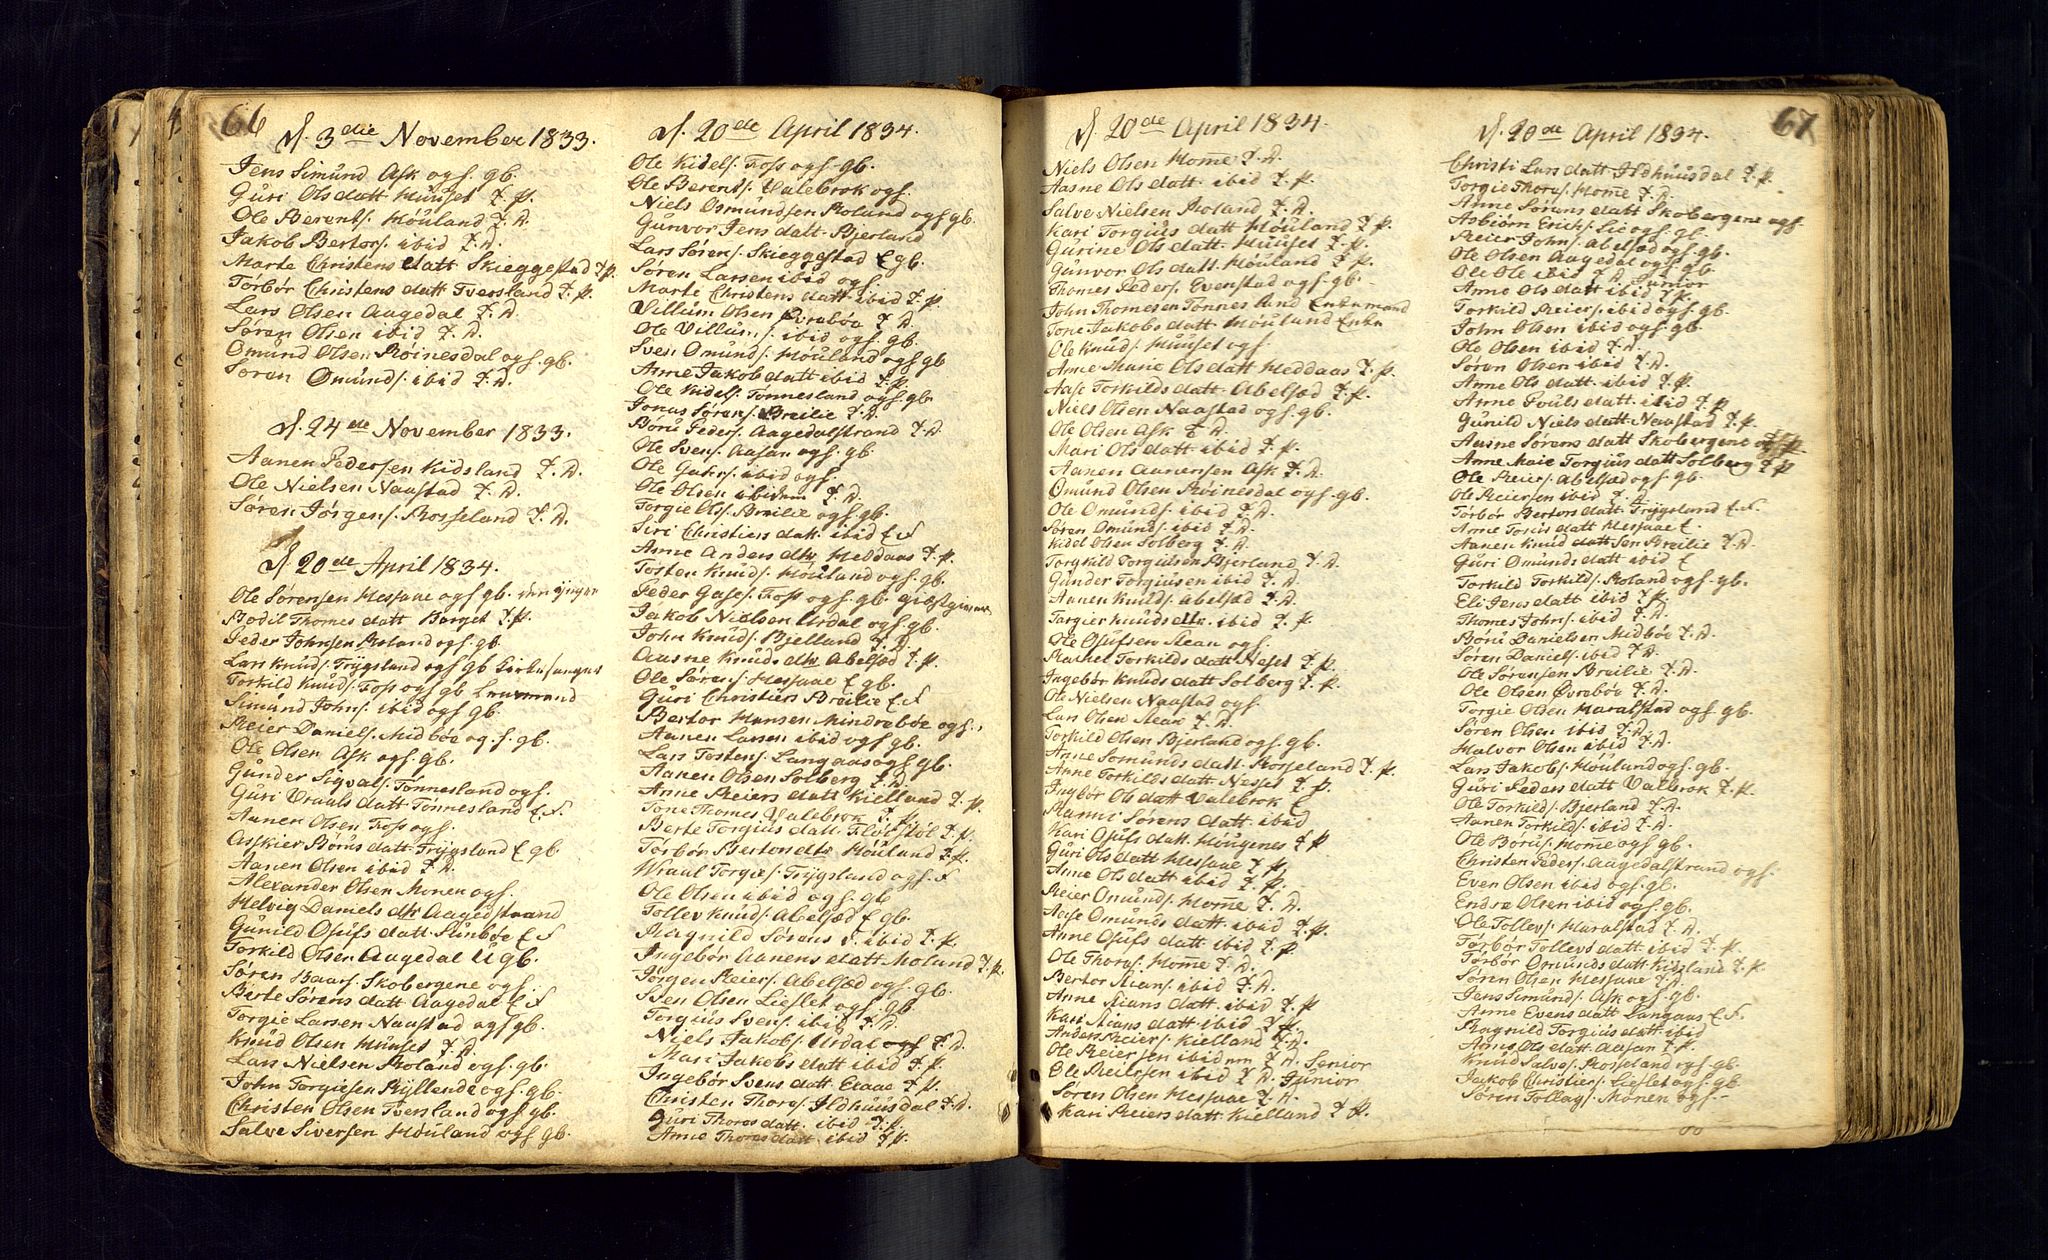 66
d. 3die November 1833.
Jens Simund Ask ogf. gb.
Guri Ols datt Muuset J. P.
Ole Berents. Houland J. D.
Jakob Bertors. ibid J. D.
Marte Christens datt Skieggestad J. P.
Torbor Christens datt Tversland J. P.
Lars Olsen Aagedal J. D.
Søren Olsen ibid J. D.
Omund Olsen Røinesdal ogf. gb.
Søren Omunds. ibid J. D.
d. 24de November 1833.
Aanen Pedersen Kidsland J. D.
Ole Nielsen Naastad J. D.
Søren Jørgens. Rosseland J. D.
d. 20de April 1834.
Ole Sørensen Messaae ogf. gb. den yngre
Bodil Thomes datt Berget J. P.
Peder Johnsen Roland ogf. gb.
Lars Knuds. Trygsland ogf gb Kirkesanger
Torkild Knuds. Foss ogf gb Enkemand
Simund Johns. ibid ogf gb.
Reier Daniels. Midbøe og. f. gb.
Ole Olsen Ask ogf. gb.
Gunder Sigvals. Tønnesland ogf.
Guri Vraals datt Tønnesland E. F.
Aanen Olsen Foss ogf.
Asskier Børus datt Trygsland E gb.
Aanen Olsen ibid J. D.
Alexander Olsen Monen ogf.
Helvig Daniels dtr Aagedstrand
Gunild Osufs datt Sunbøe E. F
Torkild Olsen Aagedal U gb.
Søren Baars. Skobergene ogf.
Berte Sørens datt Aagedal E F
Torgie Larsen Naastad ogf gb.
Knud Olsen Muuset J. D.
Lars Nielsen Roland ogf. gb.
John Torgiesen Ryllende ogf. gb.
Christen Olsen Tversland ogf gb.
Salve Siversen Houland ogf gb.
d. 20de April 1834.
Ole Kidels. Foss ogf. gb.
Ole Berents. Valebrok ogf.
Niels Osmundsen Roland ogf gb.
Gunvor Jens datt Bjerland
Lars Sørens. Skieggestad E gb.
Søren Larsen ibid ogf.
Marte Christens datt ibid J. P.
Villum Olsen Øvrebøe J. D.
Ole Villums. ibid ogf. gb.
Sven Omunds. Houland ogf gb
Anne Jakob datt ibid J. P.
Ole Kidels. Tønnesland ogf gb.
Jonas Sørens. Breilie J. D.
Børu Peders. Aagedalstrand J. D.
Ole Svens. Aasan ogf. gb.
Ole ibid ogf.
Ole Olsen ibidem J. D.
Torgie Ols. Breilie ogf gb.
Siri Christiens datt ibid E F
Anne Anders dtr Heddaas J. P.
Tosten Knuds. Houland ogf gb.
Peder Foss ogf. gb. giæstgiver
Jakob Nielsen Urdal ogf gb.
John Knuds. Bjelland J. D.
Aasne Knuds dtr Abelsæd J. P.
Ole Sørens. Messaae E gb.
Guri Christiens Breilie E. F
Bertor Hansen Mindrebøe ogf.
Aanen Larsen ibid ogf gb.
Lars Tostens. Langaas ogf gb.
Aanen Olsen Solberg J. D.
Anne Reiers datt Kielland J. P.
Tone Thomes Valebrok J. P.
Berte Torgius datt Fløistøl J. P.
Torbor Bertors dtr Houland J. P.
Wraal Torgies. Trygsland ogf. F
Ole Olsen ibid ogf gb
Tollev Knuds. Abelsæd E gb.
Ragnild Sørens d. ibid J. P.
Ingebør Aanens datt Moland J. P.
Jørgen Reiers. Abelsæd ogf. gb.
Sven Olsen Lieslet ogf. gb.
Torgius Svens. ibid J. D.
Niels Jakobs. Urdal ogf J. D.
Mari Jakobs datt ibid J. P.
Ingebør Svens datt Eiaae J. P.
Christen Thores. Ildhuusdal J. D.
Guri Thores datt. ibid J. P.
Anne Thores datt ibid J. P.
d. 20de April 1834.
Niels Olsen Home J. D.
Aasne Ols datt ibid J. P.
Salve Nielsen Roland J. D.
Kari Torgius datt Houland J. P.
Gurine Ols datt. Muuset J. P.
Gunvor Ols datt. Houland J. P.
Thomes Peders. Evenstad ogf. gb.
John Thomesen Tønnesland Enkemand
Tone Jakobs datt Houland Enke
Ole Knuds. Muuset ogf
Anne Marie Ols datt Heddaas J. P.
Aase Torkilds datt Abelsæd J. P.
Niels Olsen Naastad ogf. gb.
Ole Olsen Ask J. D.
Mari Ols datt ibid J. P.
Aanen Aanensen Ask J. D.
Omund Olsen Røinesdal ogf. gb.
Ole Omunds. ibid J. D.
Søren Omunds. ibid J. D.
Kidel Olsen Solberg J. D.
Torgkild Torgiusen Bjerland J. D.
Gunder Torgiusen ibid J. D.
Aanen Knuds. Abelsæd J. D.
Torgier Knuds dtr. ibid J. P.
Ole Osufsen Aean ogf.
Rachel Torkilds datt Neset J. P.
Ingebør Knuds datt Solberg J. P.
Ole Nielsen Naastad ogf
Lars Olsen Aean J. D.
Torkild Olsen Bjerland ogf. gb.
Anne Somunds datt Rosseland J. P.
Anne Torkilds datt Nesset J. P.
Ingbør Ols datt Valebrok E
Ranni Sørens datt ibid
Kari Osufs datt Hougenes J P
Guri Ols datt Messaae J. P.
Anne Ols datt ibid J. P.
Reier Omunds. Home J. D.
Aase Omunds datt ibid J. P.
Anne Osufs datt ibid J. P.
Ole Thors. Home J. D.
Bertor Aians. ibid J. D.
Anne Aians datt ibid J. P
Kari Aians datt ibid J. P.
Anders Reiers. Kielland J. D.
Ole Reiersen ibidem J. D. Senior
Ole Reiersen ibid J. D. Junior
Søren Olsen Messaae J. D.
Kari Reiers datt Kielland J. P.
67
d. 20de April 1834.
Christi Lars datt Ildhuusdal J. P.
Torgie Thors. Home J. D.
Anne Sørens datt Skobergene ogf.
Asbiørn Erichs. Lie ogf. gb.
Reier Johns. Abelsæd ogf. gb.
Ole Olsen Aagedal ogf. gb.
Ole Ols ibid J. D. Junior
Anne Ols datt ibid J. P.
Torkild Reiers. ibid ogf. gb.
John Olsen ibid ogf. gb.
Ole Olsen ibid J. D.
Søren Olsen ibid J. D.
Anne Ols datt ibid J. P.
Anne Pouls datt. ibid J. P.
Gunild Niels datt Naastad J. P.
Aasne Sørens datt Skobergene J. P.
Anne Maie Torgius datt Solberg J P
Ole Reiers. Abelsæd ogf. gb.
Ole Reiersen ibid J. D.
Torbør Bertors datt Trygsland E. F.
Anne Tosus datt Messaae E.
Aanen Knud datt sen Breilie J. D.
Guri Omunds datt ibid E
Torkild Torkilds. Roland ogf. gb.
Eli Jens datt ibid J. P.
Thomes Johns. ibid J. D.
Børu Danielsen Midbøe J. D.
Søren Daniels. ibid J. D.
Ole Sørensen Breilie J. D.
Ole Olsen Øvrebøe J. D.
Torgie Olsen Haralstad ogf gb.
Søren Olsen ibid J. D.
Halvor Olsen ibid J. D.
Lars Jakobs. Houland ogf. gb.
Guri Peders datt Valbrok J. P.
Ole Torkilds. Bjerland J. D.
Aanen Torkilds. ibid J. D.
Ole Børus. Home ogf gb.
Christen Peders. Aagedalstrand ogf.
Even Olsen ibid ogf. gb.
Endre Olsen ibid ogf gb.
Ole Tollevs. Haralstad J. D.
Torbør Tollevs datt ibid J. P.
Torbør Omunds datt Kidsland J. P.
Søren Olsen Messaae J. D.
Jens Simunds. Ask ogf. gb.
Anne Evens datt Langaas E. F.
Ragnild Torgius datt ibid
Anne Ols datt. Aasan J. P.
Knud Salves. Rosseland ogf. gb.
Jakob Christiers. Lieslet ogf. gb.
Søren Tollags. Monen ogf.